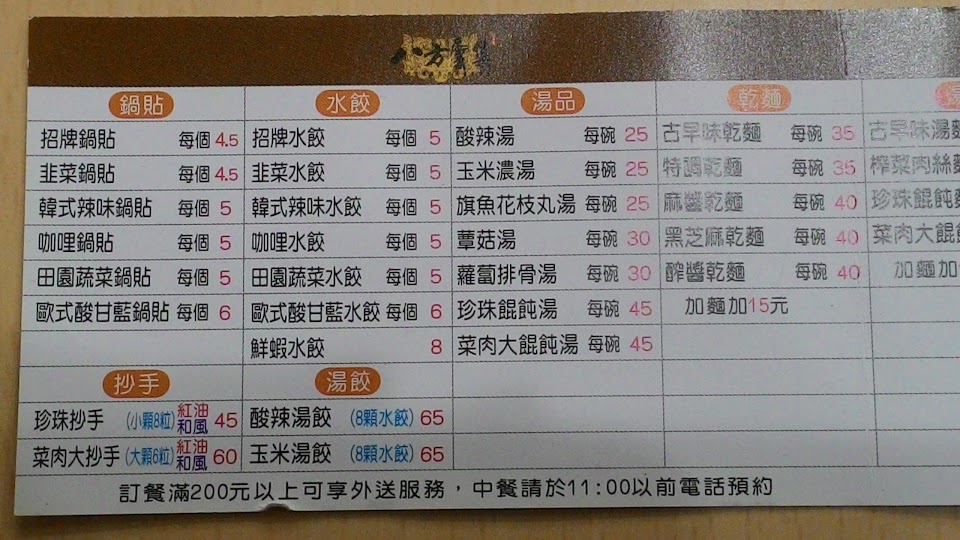 鍋貼 水餃 湯品 乾麵
招牌鍋貼 每個 4.5 招牌水餃 每個 5 酸辣湯 每碗 25 古早味乾麵 每碗 35 古早味湯麵
韭菜鍋貼 每個 4.5 韭菜水餃 每個 5 玉米濃湯 每碗 25 特調乾麵 每碗 35 榨菜肉絲麵
韓式辣味鍋貼 每個 5 韓式辣味水餃 每個 5 旗魚花枝丸湯 每碗 25 麻醬乾麵 每碗 40 珍珠餛飩麵
咖哩鍋貼 每個 5 咖哩水餃 每個 5 蕈菇湯 每碗 30 黑芝麻乾麵 每碗 40 菜肉大餛飩
田園蔬菜鍋貼 每個 5 田園蔬菜水餃 每個 5 蘿蔔排骨湯 每碗 30 醡醬乾麵 每碗 40 加麵加
歐式酸甘藍鍋貼 每個 6 歐式酸甘藍水餃 每個 6 珍珠餛飩湯 每碗 45 加麵加15元
鮮蝦水餃 8 菜肉大餛飩湯 每碗 45
抄手 湯餃
珍珠抄手 (小顆8粒) 紅油 和風 45 酸辣湯餃 (8顆水餃) 65
菜肉大抄手 (大顆6粒) 紅油 和風 60 玉米湯餃 (8顆水餃) 65
訂餐滿200元以上可享外送服務，中餐請於11:00以前電話預約